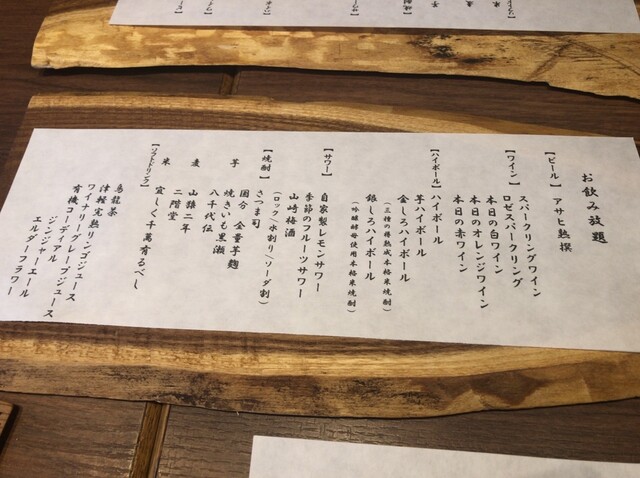 お飲み放題
【ビール】 アサヒ熟撰
【ワイン】 スパークリングワイン
ロゼスパークリング
本日の白ワイン
本日のオレンジワイン
本日の赤ワイン
【ハイボール】 ハイボール
芋ハイボール
金しろハイボール
(三種の樽熟成本格米焼酎)
銀しろハイボール
(吟醸酵母使用本格米焼酎)
【サワー】 自家製レモンサワー
季節のフルーツサワー
山崎梅酒
(ロック/水割り/ソーダ割)
【焼酎】 さつま司
芋 国分 金童芋麹
焼きいも黒瀬
八千代伝
麦 山猿二年
二階堂
米 宜しく千萬有るべし
【ソフトドリンク】
烏龍茶
津軽完熟リンゴジュース
ワイナリーグレープジュース
有機コーディアル
ジンジャーエール
エルダーフラワー